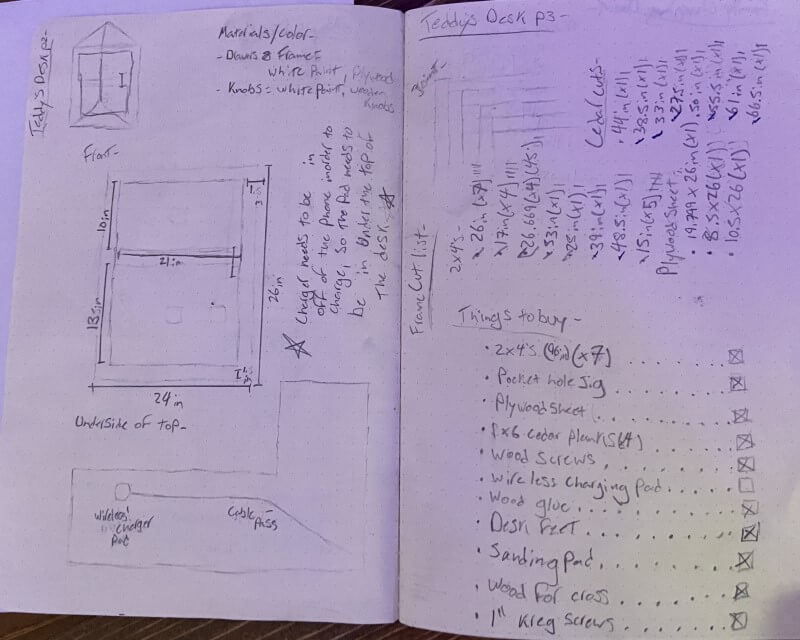 Teddy's Desk p2-
Materials/color-
- Draws & Frame=
white Paint, Plywood
- Knobs= white Paint, wooden
Knobs
Front-
10in
21in
13.5in
3in
26in
24in
Charger needs to be in
off of the phone inorder to
charge, so the Pad needs to
be in under the top of
the desk
Underside of top-
wireless
charger
Pad
Cable
Pass
Teddy's Desk p3-
Frame Cut list-
2x4's-
26in (x7)
17in (x4)
26.669 (x4) (45°)
53in (x1)
39in (x1)
48.5in (x1)
15in (x5)
Plywood Sheet
• 19.749 x 26in (x1)
• 8.5 x 26 (x1)
• 10.5 x 26 (x1)
Cedar cuts-
44in (x1)
38.5in (x1)
33in (x1)
27.5in (x1)
50in (x1)
55.5in (x1)
61in (x1)
66.5in (x1)
Things to buy-
• 2x4's (96in) (x7)
• Pocket hole Jig
• Plywood Sheet
• 1x6 Cedar Plank
• Wood Screws
• wireless Charging Pad
• Wood glue
• Desk Feet
• Sanding Pad
• Wood For cross
• 1" Kreg Screws